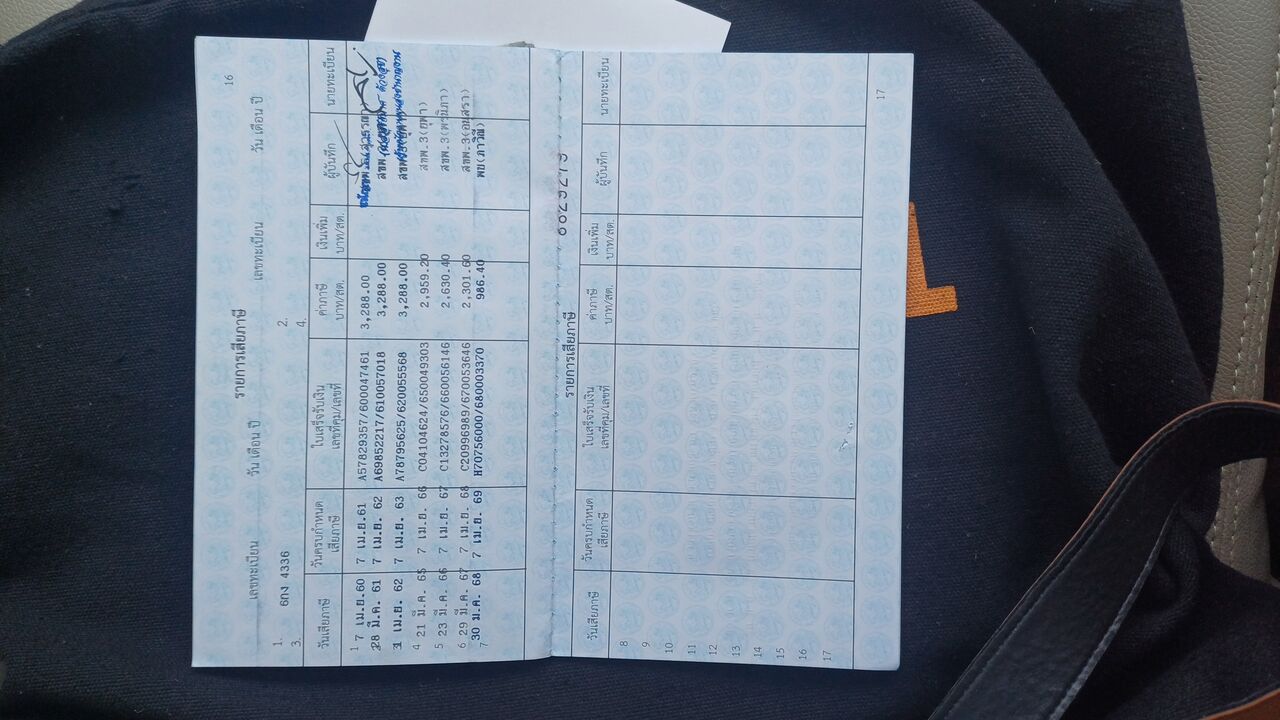 16
รายการเสียภาษี
เลขทะเบียน วัน เดือน ปี เลขทะเบียน วัน เดือน ปี
1. 6กง 4336 2.
3. 4.
วันเสียภาษี วันครบกำหนดเสียภาษี ใบเสร็จรับเงิน เลขที่คุม/เลขที่ ค่าภาษี บาท/สต. เงินเพิ่ม บาท/สต. ผู้บันทึก นายทะเบียน
1 7 เม.ย.60 7 เม.ย.61 A57829357/600047461 3,288.00
28 มี.ค. 61 7 เม.ย. 62 A69852217/610057018 3,288.00 สขพ.
1 เม.ย. 62 7 เม.ย. 63 A78795625/620055568 3,288.00 สขพ.
4 21 มี.ค. 65 7 เม.ย. 66 C04104624/650049303 2,959.20 สขพ.3(ยุพา)
5 23 มี.ค. 66 7 เม.ย. 67 C13278576/660056146 2,630.40 สขพ.3(พรนิภา)
6 29 มี.ค. 67 7 เม.ย. 68 C20996989/670053646 2,301.60 สขพ.3(อนุสรา)
7 30 มี.ค. 68 7 เม.ย. 69 H70756000/680003370 986.40 พข(ภาวิณี)
รายการเสียภาษี
วันเสียภาษี วันครบกำหนดเสียภาษี ใบเสร็จรับเงิน เลขที่คุม/เลขที่ ค่าภาษี บาท/สต. เงินเพิ่ม บาท/สต. ผู้บันทึก นายทะเบียน
8
9
10
11
12
13
14
15
16
17
17